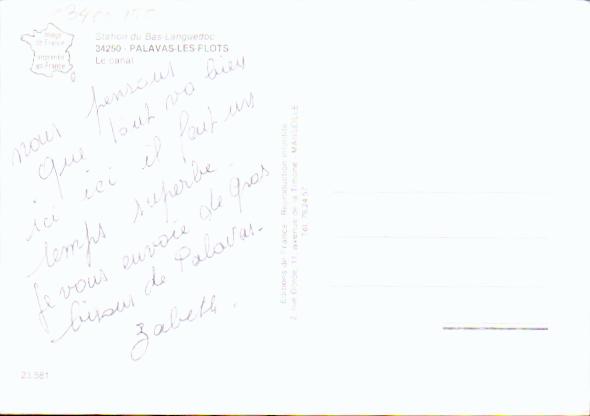 Image
de France
Imprimé
en France
Station du Bas-Languedoc
34250 - PALAVAS-LES-FLOTS
Le canal
nous pensons
que tout va bien
ici ici il fait un
temps superbe.
je vous envoie de gros
bisous de Palavas.
Zabeth.
Editions de France - Reproduction interdite
2, rue Goïde, 11, avenue de la Timone - MARSEILLE
Tél. 79.24.57
23.581